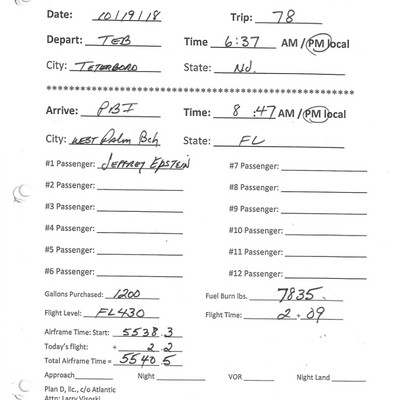 Date: 10/19/18 Trip: 78
Depart: TEB Time 6:37 AM / PM local
City: TETERBORO State: NJ.
************************************************
Arrive: PBI Time: 8:47 AM / PM local
City: WEST Palm Bch State: FL
#1 Passenger: JEFFREY EPSTEIN #7 Passenger:
#2 Passenger: #8 Passenger:
#3 Passenger: #9 Passenger:
#4 Passenger: #10 Passenger:
#5 Passenger: #11 Passenger:
#6 Passenger: #12 Passenger:
Gallons Purchased: 1200 Fuel Burn lbs. 7835
Flight Level: FL430 Flight Time: 2+09
Airframe Time: Start: 5538.3
Today's flight: + 2.2
Total Airframe Time = 5540.5
Approach Night VOR Night Land
Plan D, llc., c/o Atlantic
Attn: Larry Visoski